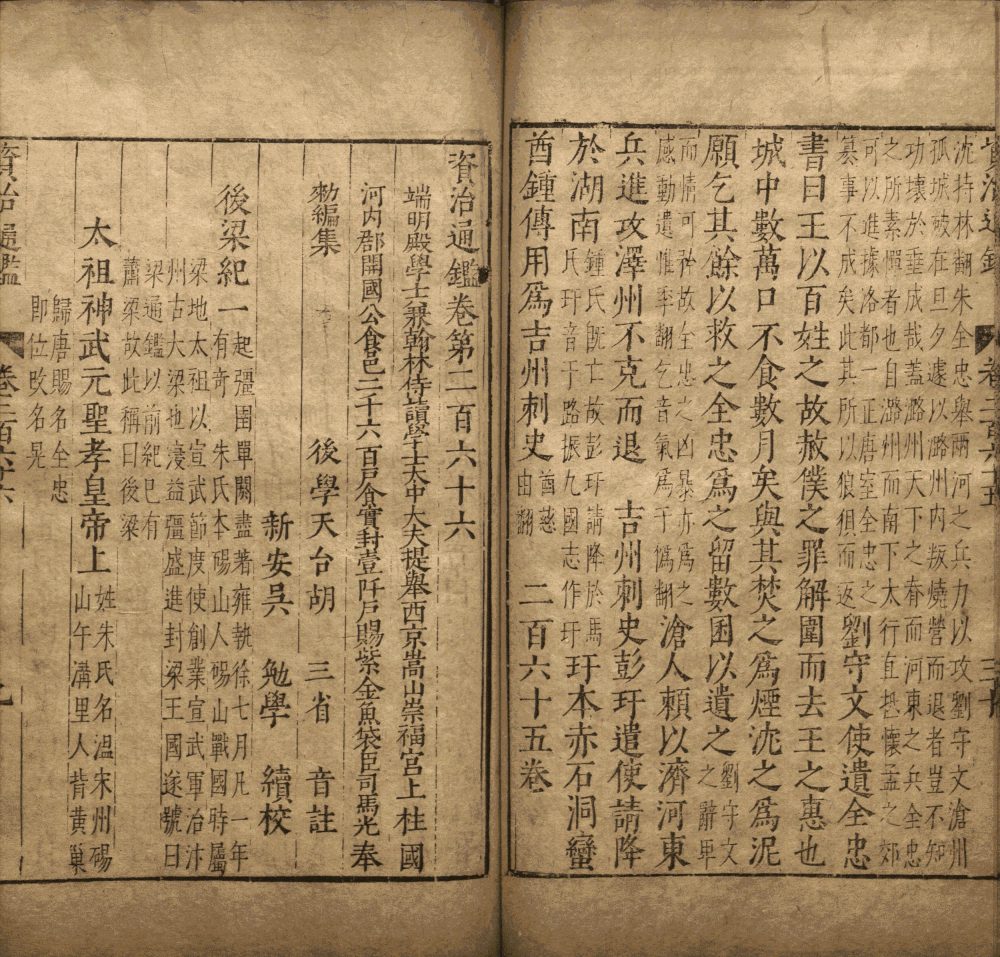 資治通鑑 卷二百六十五 三十
沈持林翻朱全忠舉兩河之兵力以攻劉守文滄州
孤城破在旦夕遽以潞州內叛燒營而退者豈不知
功壞於垂成哉蓋潞州天下之脊而河東之兵全忠
之所素憚者也自潞州而南下太行直抵懷孟之郊
可以進據洛都一正唐室全忠之
篡事不成矣此其所以狼狽而返
劉守文使遺全忠
書曰王以百姓之故赦僕之罪解圍而去王之惠也
城中數萬口不食數月矣與其焚之爲煙沈之爲泥
願乞其餘以救之全忠爲之留數囷以遺之
劉守文
之辭卑
而情可矜故全忠之凶暴亦爲之
感動遺惟季翻乞音氣爲于僞翻
滄人賴以濟河東
兵進攻澤州不克而退 吉州刺史彭玕遣使請降
於湖南
鍾氏旣亡故彭玕請降於馬
氏玕音于路振九國志作玗
玕本赤石洞蠻
酋鍾傳用爲吉州刺史
酋慈
由翻
二百六十五卷
資治通鑑卷第二百六十六
端明殿學士兼翰林侍讀學士太中大夫提舉西京嵩山崇福宮上柱國
河內郡開國公食邑二千六百戶食實封壹阡戶賜紫金魚袋臣司馬光奉
勑編集
後學天台胡 三省 音註
新安吳 勉學 續校
後梁紀一
起彊圉單閼盡著雍執徐七月凡一年
有奇 朱氏本碭山人碭山戰國時屬
梁地太祖以宣武節度使創業宣武軍治汴
州古大梁也寖益彊盛進封梁王國遂號曰
梁通鑑以前紀已有
蕭梁故此稱曰後梁
太祖神武元聖孝皇帝上
姓朱氏名溫宋州碭
山午溝里人背黃巢
歸唐賜名全忠
卽位改名晃
資治通鑑 卷二百六十六